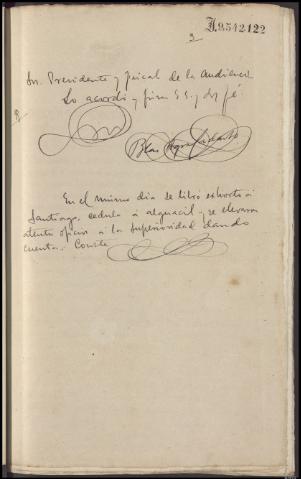 J.9542122
2
Sr. Presidente y fiscal de la Audiencia
Lo acordó y firma S.S. y doy fé.
Blas
En el mismo dia se libró exhorto á
Santiago, cedula á alguacil y se elevaron
atentos oficios á la Superioridad dando
cuenta. Conste